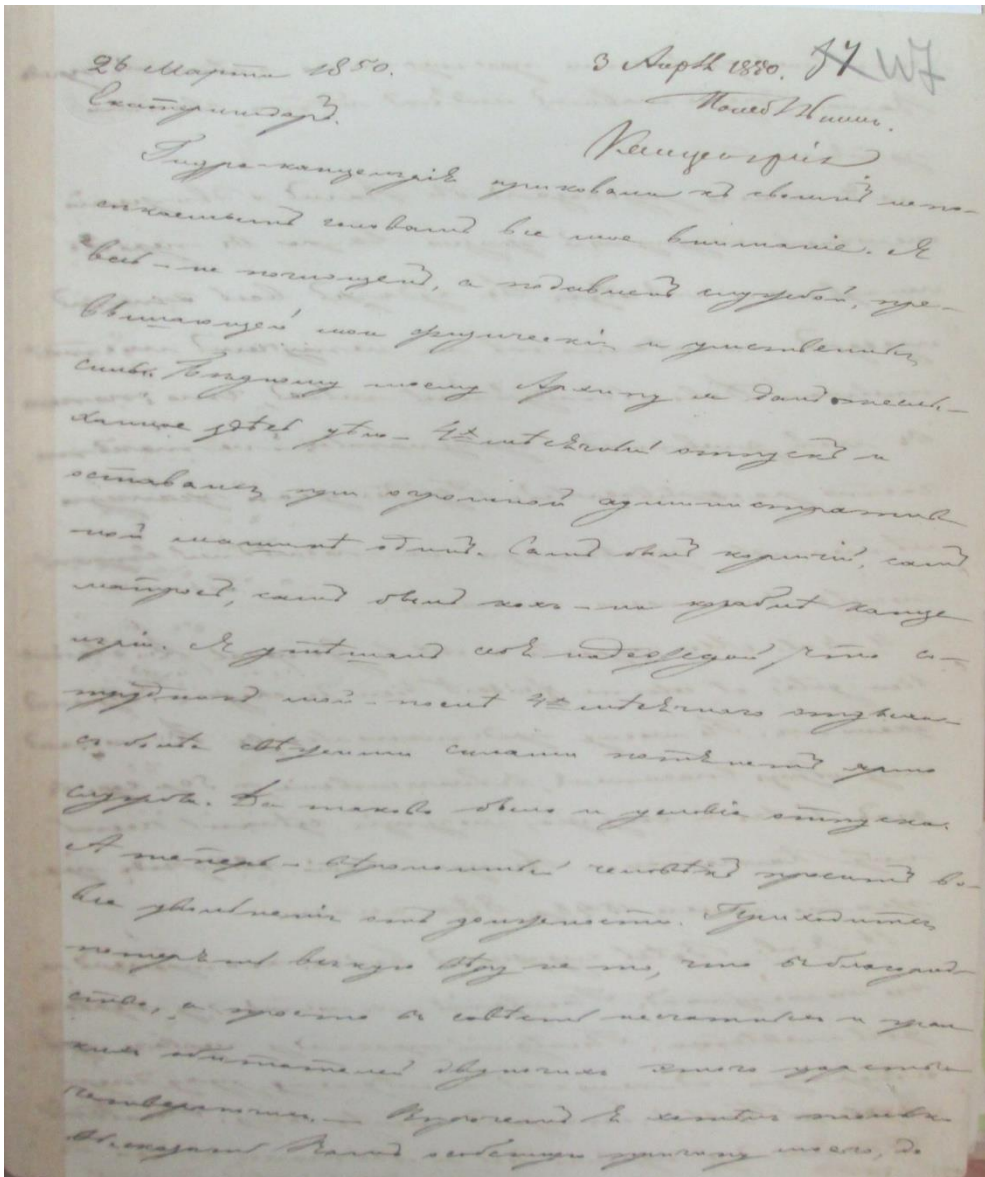 26 Марта 1850.
3 Апрѣл 1850. 57
Екатеринодаръ.
Канцелярія
Гидра-канцелярія приковала къ своимъ непо-
головамъ все мое вниманіе. Я
весь – не поглощенъ, а подавленъ службой, пре-
вышающей мои физическія и умственныя
силы. Бѣдному моему Архипу я далъ неслы-
ханное здѣсь дѣло – 4х мѣсячный отпускъ и
оставался при огромной административ-
ной машинѣ одинъ. Самъ былъ кормчій, самъ
матросъ, самъ былъ кокъ – на кораблѣ канце-
ляріи. Я утѣшалъ себя надеждой, что со-
трудникъ мой – послѣ 4х мѣсячнаго отдыха
съ болѣе свѣжими силами потянетъ ярмо
Да таково было и условіе отпуска.
А теперь – вѣроломный человѣкъ проситъ во-
все увольненія отъ должности. Приходится
потерять всякую вѣру не то, что въ благород-
ство, а просто въ совѣсть и
обитателей двуногихъ этого царства
четвероногихъ. – Впрочемъ я хотѣлъ только
высказать Вамъ особенную причину моего, до